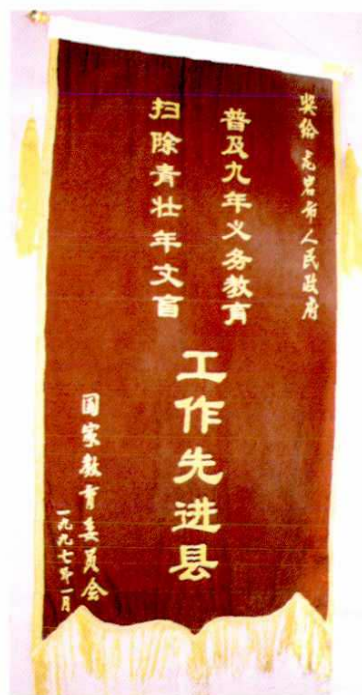 奖给龙岩市人民政府
普及九年义务教育
扫除青壮年文盲
工作先进县
国家教育委员会
一九九七年一月